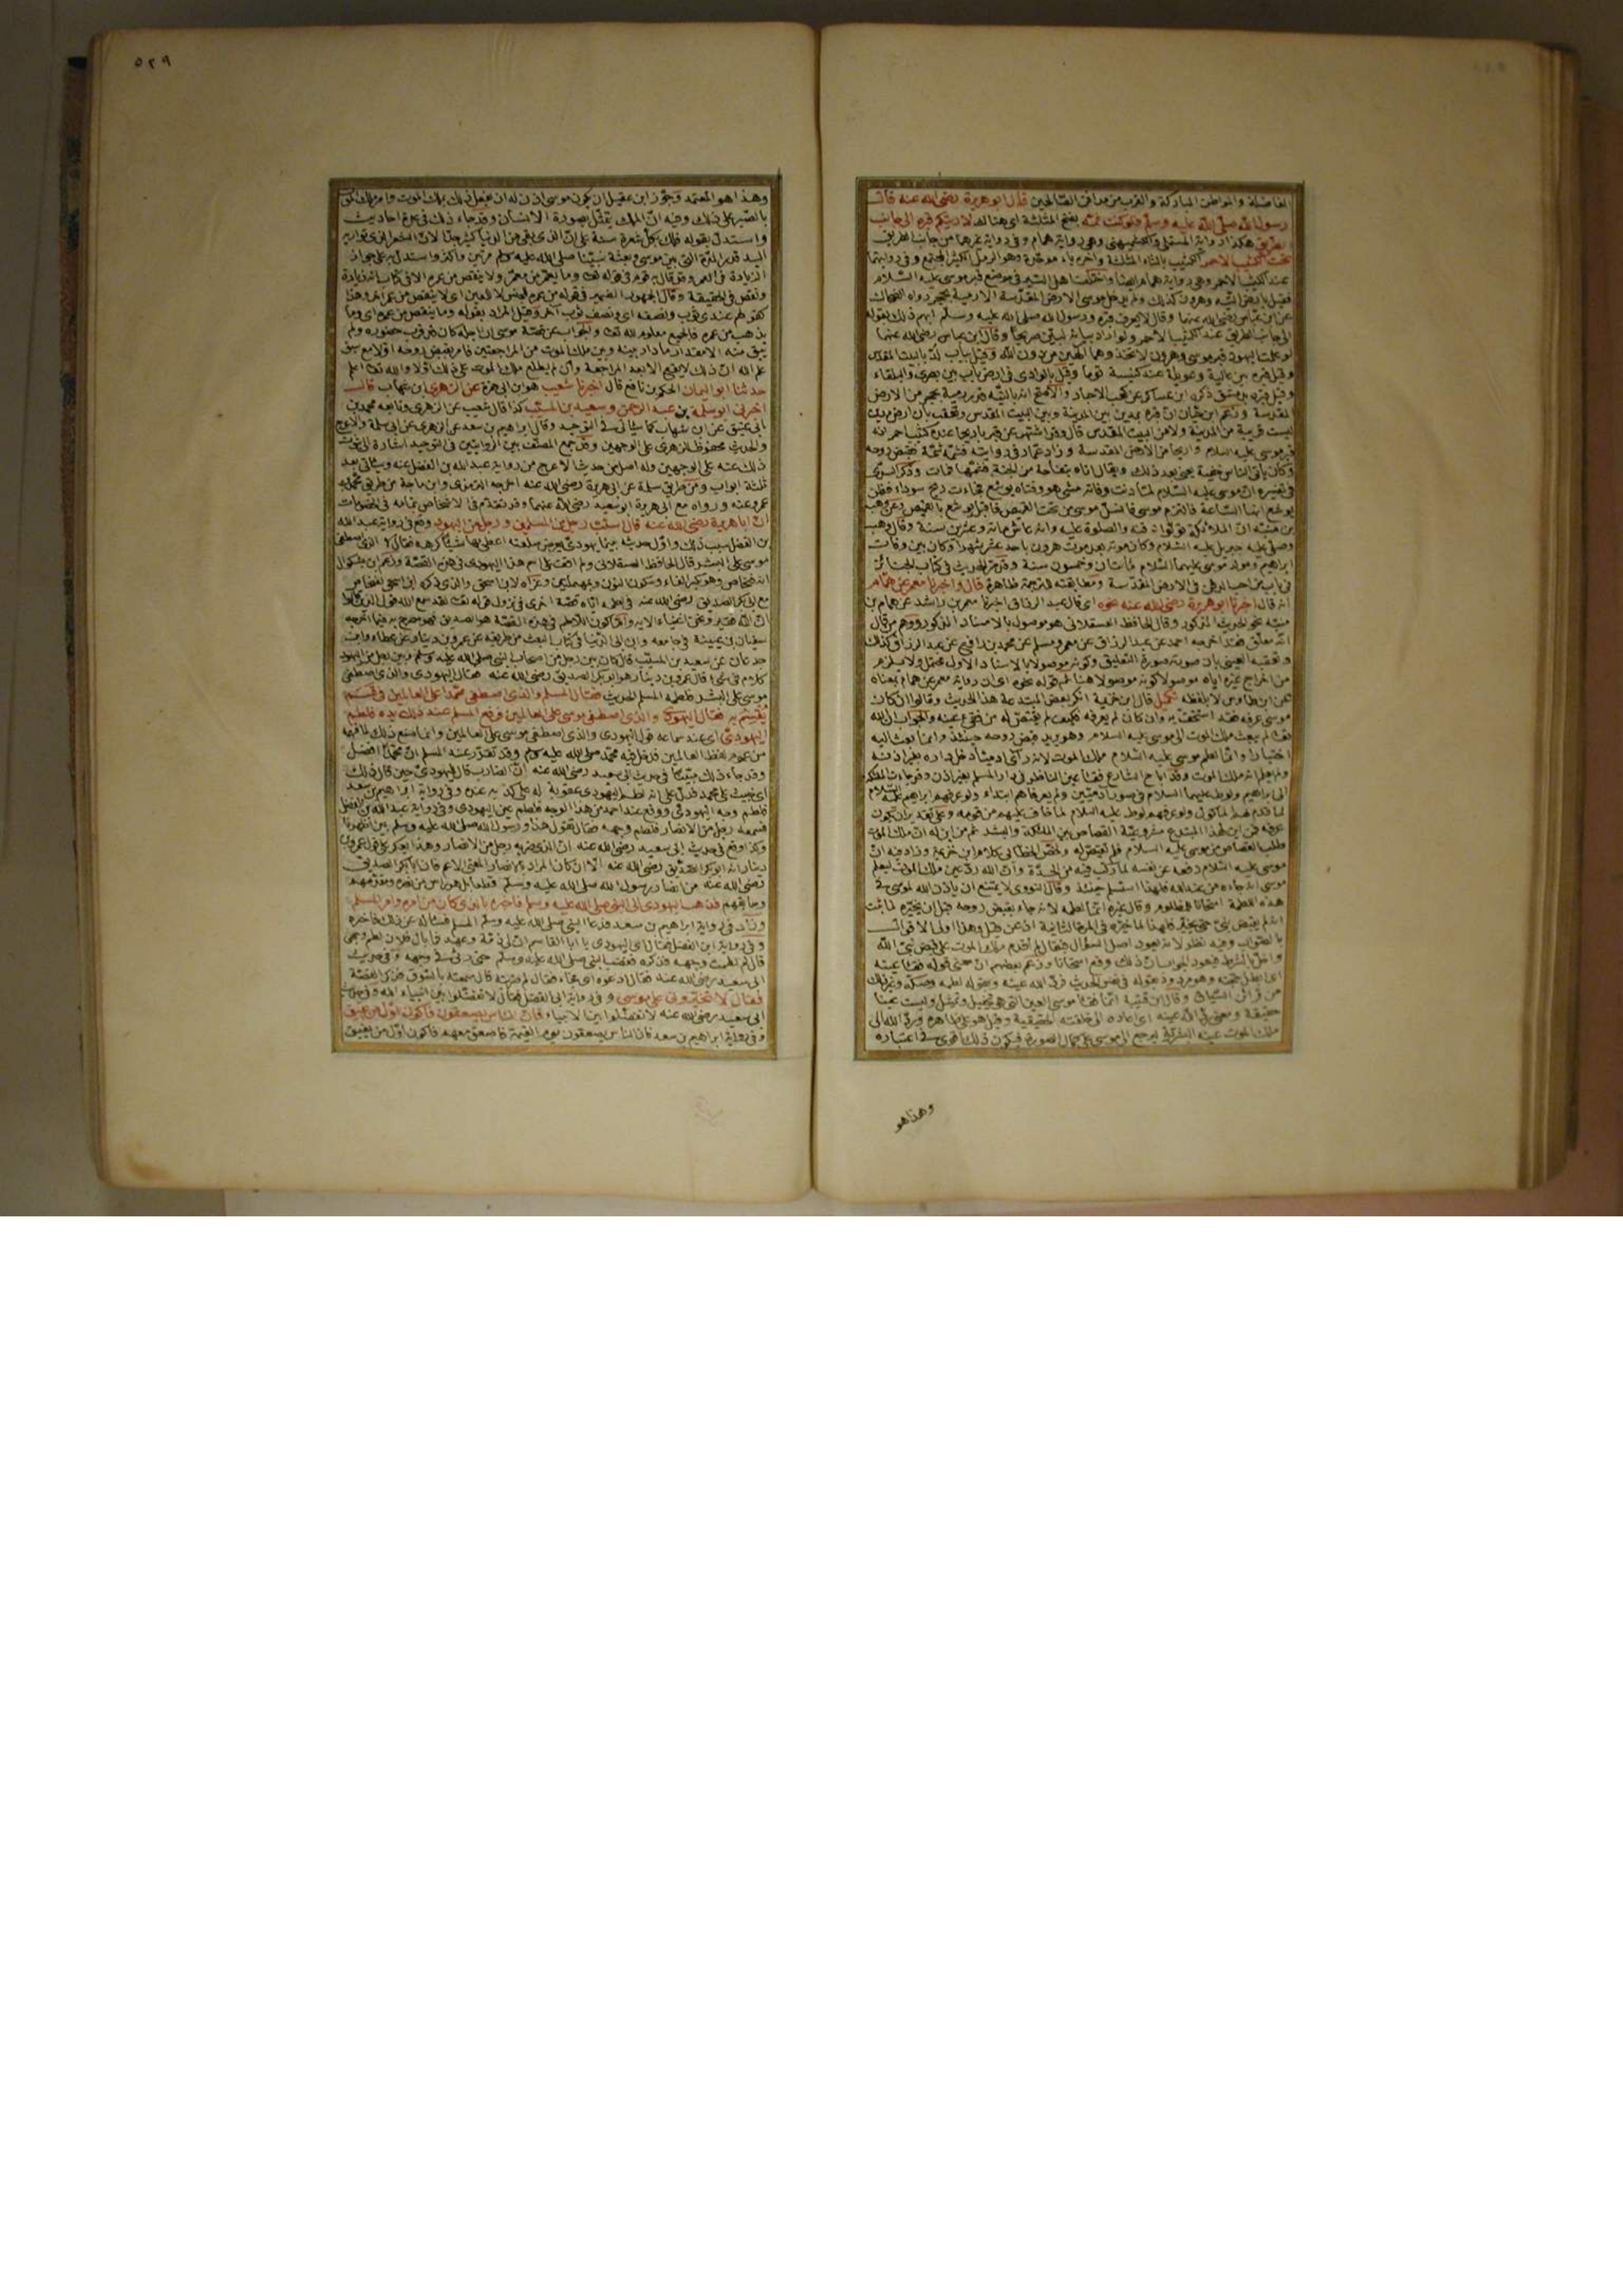 الفاضلة والمواطن المباركة والقرب من مدافن الصالحين قال ابو هريرة رضي الله عنه فقال
رسول الله صلى الله عليه وسلم فلو كنت ثمه بفتح المثلثة اي هناك لاريتكم قبره الى جانب
الطريق هكذا رواية المستملي والكشميهني وهي رواية همام وفي رواية غيرهما من جانب الطريق
تحت الكثيب الاحمر الكثيب بالثاء المثلثة واخره باء موحدة وهو الرمل الكثير المجتمع وفي روايتهما
عند الكثيب الاحمر وهي رواية همام ايضا واختلف اهل السير في موضع قبر موسى عليه السلام
فقيل بارض التيه وهرون كذلك ولم يدخل موسى الارض المقدسة الا رمية بحجر رواه الضحاك
عن ابن عباس رضي الله عنهما وقال لا يعرف قبره ورسول الله صلى الله عليه وسلم ابهم ذلك بقوله
الى جانب الطريق عند الكثيب الاحمر ولو اراد بيانه لبين صريحا وقال ابن عباس رضي الله عنهما
لو علمت اليهود قبر موسى وهرون لاتخذوهما الهين من دون الله وقيل بباب لد بالبيت المقدس
وقيل قبره بين عالية وعويلة عند كنيسة توما وقيل بالوادي في ارض ماب بين بصرى والبلقاء
وقيل قبره بدمشق ذكره ابن عساكر عن كعب الاحبار والاصح انه بالتيه قدر رمية بحجر من الارض
المقدسة وزعم ابن حبان ان قبره بمدين بين المدينة وبين البيت المقدس وتعقب بان ارض مدين
ليست قريبة من المدينة ولا من البيت المقدس قال وقد اشتهر عن قبر باريحا عنده كثيب احمر انه
قبر موسى عليه السلام واريحا من الارض المقدسة وزاد عمار في روايته فشمه شمة فقبض روحه
وكان ياتي الناس خفية يعني بعد ذلك ويقال اتاه بتفاحة من الجنة فشمها فمات وذكر السدي
في تفسيره ان موسى عليه السلام لما دنت وفاته مشى هو وفتاه يوشع فجاءت ريح سوداء فظن
يوشع انها الساعة فالتزم موسى فانسل موسى من تحت القميص فاقبل يوشع بالقميص وعن وهب
بن منبه ان الملائكة تولوا دفنه والصلوة عليه وانه عاش مائة وعشرين سنة وقال وهب
وصلى عليه جبريل عليه السلام وكان موته بعد موت هرون باحد عشر شهرا وكان بين وفات
ابراهيم ومولد موسى عليهما السلام مائتان وخمسون سنة وقد مر الحديث في كتاب الجنائز
في باب من احب الدفن في الارض المقدسة ومطابقته للترجمة ظاهرة قال واخبرنا معمر عن همام
انه قال اخبرنا ابو هريرة رضي الله عنه نحوه اي قال عبد الرزاق اخبرنا معمر بن راشد عن همام بن
منبه نحو الحديث المذكور وقال الحافظ العسقلاني هو موصول بالاسناد المذكور ووهم من قال
انه معلق فقد اخرجه احمد عن عبد الرزاق عن معمر ومسلم عن محمد بن رافع عن عبد الرزاق كذلك
وتعقبه العيني بان صورته صورة التعليق وكونه موصولا بالاسناد الاول محتمل ولا يستلزم
من اخراج غيره اياه موصولا كونه موصولا هنا ثم قوله نحوه اي ان رواية معمر عن همام بمعناه
عن ابن طاوس لا بلفظه تكميل قال ابن خزيمة انكر بعض المبتدعة هذا الحديث وقالوا ان كان
موسى عرفه فقد استخف به وان كان لم يعرفه فكيف لم يقتص له من فقئ عينه والجواب ان الله
تعالى لم يبعث ملك الموت الى موسى عليه السلام وهو يريد قبض روحه حينئذ وانما بعثه اليه
اختبارا وانما لطم موسى عليه السلام ملك الموت لانه راى ادميا دخل داره بغير اذنه
ولم يعلم انه ملك الموت وقد اباح الشارع فقأ عين الناظر في دار المسلم بغير اذن وقد جاءت الملائكة
الى ابراهيم ولوط عليهما السلام في صورة ادميين ولم يعرفاهم ابتداء ولو عرفهم ابراهيم عليه السلام
لما قدم لهم الماكول ولو عرفهم لوط عليه السلام لما خاف عليهم من قومه وعلى تقدير ان يكون
عرفه فمن اين لهذا المبتدع مشروعية القصاص بين الملائكة والبشر ثم من اين له ان ملك الموت
طلب القصاص من موسى عليه السلام فلم يقتص له ولخص الخطابي كلام ابن خزيمة وزاد فيه ان
موسى عليه السلام دفعه عن نفسه لما ركب فيه من الحدة وان الله رد عين ملك الموت ليعلم
موسى انه جاءه من عند الله فلهذا استسلم حينئذ وقال النووي لا يمتنع ان ياذن الله لموسى في
هذه اللطمة امتحانا للملطوم وقال غيره انما لطمه لانه جاء بقبض روحه قبل ان يخيره لما ثبت
انه لم يقبض نبي حتى يخير فلهذا لما خيره في المرة الثانية اذعن قيل وهذا اولى الاقوال
بالصواب وفيه نظر لانه يعود اصل السؤال فيقال لم اقدم ملك الموت على قبض نبي الله
واخل بالشرط فيعود الجواب ان ذلك وقع امتحانا وزعم بعضهم ان معنى قوله فقأ عينه
اي ابطل حجته وهو مردود بقوله في نفس الحديث فرد الله عينه وبقوله لطمه وصكه وغير ذلك
من قرائن السياق وقال ابن قتيبة انما فقأ موسى العين التي هي تخييل وتمثيل وليست عينا
حقيقة ومعنى رد الله عينه اي اعاده الى خلقته الحقيقية وقيل هو على ظاهره ورد الله الى
ملك الموت عينه البشرية ليرجع الى موسى على كمال الصورة فيكون ذلك اقوى في اعتباره
وهذا هو
٥٢٩
وهذا هو المعتمد وجوز ابن عقيل ان يكون موسى اذن له ان يفعل ذلك بملك الموت وامر ملك الموت
بالصبر على ذلك وفيه ان الملك يتمثل بصورة الانسان وقد جاء ذلك في عدة احاديث
واستدل بقوله فلك بكل شعرة سنة على ان الذي بقي من الدنيا كثير جدا لان الشعر الذي تواريه
اليد قدر المدة التي بين موسى وبعثة نبينا صلى الله عليه وسلم مرتين واكثر واستدل به على جواز
الزيادة في العمر وقد قال به قوم في قوله تعالى وما يعمر من معمر ولا ينقص من عمره الا في كتاب انه زيادة
ونقص في الحقيقة وقال الجمهور الضمير في قوله من عمره للجنس لا للعين اي لا ينقص من عمر اخر وهذا
كقولهم عندي ثوب ونصفه اي ونصف ثوب آخر وقيل المراد بقوله وما ينقص من عمره اي وما
يذهب من عمره فالجميع معلوم لله تعالى والجواب عن قصة موسى ان اجله كان قد قرب حضوره ولم
يبق منه الا مقدار ما دار بينه وبين ملك الموت من المراجعتين فامر بقبض روحه اولا مع سبق
علم الله ان ذلك لا يقع الا بعد المراجعة وان لم يطلع ملك الموت على ذلك اولا والله تعالى اعلم
حدثنا ابو اليمان الحكم بن نافع قال اخبرنا شعيب هو ابن ابي حمزة عن الزهري ابن شهاب قال
اخبرني ابو سلمة بن عبد الرحمن وسعيد بن المسيب كذا قال شعيب عن الزهري وتابعه محمد بن
ابي عتيق عن ابن شهاب كما سياتي في التوحيد وقال ابراهيم بن سعد عن الزهري عن ابي سلمة والاعرج
والحديث محفوظ للزهري على الوجهين وقد جمع المصنف بين الروايتين في التوحيد اشارة الى ثبوت
ذلك عنه على الوجهين وله اصل من حديث الاعرج من رواية عبد الله بن الفضل عنه وسياتي بعد
ثلثة ابواب ومن طريق ابي سلمة عن ابي هريرة رضي الله عنه اخرجه الترمذي وابن ماجة من طريق محمد بن
عمرو عنه ورواه مع ابي هريرة ابو سعيد رضي الله عنهما وقد تقدم في الاشخاص بتمامه في الخصومات
ان ابا هريرة رضي الله عنه قال استب رجل من المسلمين ورجل من اليهود وقع في رواية عبد الله
بن الفضل سبب ذلك واول حديثه بينما يهودي يعرض سلعته اعطي بها شيئا كرهه فقال لا والذي اصطفى
موسى على البشر قال الحافظ العسقلاني ولم اقف على اسم هذا اليهودي في هذه القصة وزعم ابن بشكوال
انه فنحاص وهو بكسر الفاء وسكون النون وبمهملتين وعزاه لابن اسحق والذي ذكره ابن اسحق لفنحاص
مع ابي بكر الصديق رضي الله عنه في لطمه اياه قصة اخرى في نزول قوله تعالى لقد سمع الله قول الذين قالوا
ان الله فقير ونحن اغنياء الاية واما كون اللاطم في هذه القصة هو الصديق فهو مصرح به فيما اخرجه
سفيان بن عيينة في جامعه وابن ابي الدنيا في كتاب البعث من طريقه عن عمرو بن دينار عن عطاء وابن
جدعان عن سعيد بن المسيب قال كان بين رجل من اصحاب النبي صلى الله عليه وسلم وبين رجل من اليهود
كلام في شيء قال عمرو بن دينار هو ابو بكر الصديق رضي الله عنه فقال اليهودي والذي اصطفى
موسى على البشر فلطمه المسلم الحديث فقال المسلم والذي اصطفى محمدا على العالمين في قسم
يقسم به فقال اليهودي والذي اصطفى موسى على العالمين فرفع المسلم عند ذلك يده فلطم
اليهودي اي عند سماعه قول اليهودي والذي اصطفى موسى على العالمين وانما صنع ذلك لما فهمه
من عموم لفظ العالمين فدخل فيه محمد صلى الله عليه وسلم وقد تقرر عند المسلم ان محمدا افضل
وقد جاء ذلك مبينا في حديث ابي سعيد رضي الله عنه ان الضارب قال لليهودي حين قال ذلك
اي خبيث على محمد فدل على انه لطم اليهودي عقوبة له على كذبه عنده وفي رواية ابراهيم بن سعد
فلطم وجه اليهودي ووقع عند احمد من هذا الوجه فلطم عين اليهودي وفي رواية عبد الله بن الفضل
فسمعه رجل من الانصار فلطم وجهه وقال تقول هذا ورسول الله صلى الله عليه وسلم بين اظهرنا
وكذا وقع في حديث ابي سعيد رضي الله عنه ان الذي ضربه رجل من الانصار وهذا يعكر على قول عمرو بن
دينار انه ابو بكر الصديق رضي الله عنه الا ان كان المراد بالانصار المعنى الاعم فان ابا بكر الصديق
رضي الله عنه من انصار رسول الله صلى الله عليه وسلم قطعا بل هو راس من نصره ومقدمهم
وسابقهم فذهب اليهودي الى النبي صلى الله عليه وسلم فاخبره بالذي كان من امره وامر المسلم
وزاد في رواية ابراهيم بن سعد فدعا النبي صلى الله عليه وسلم المسلم فساله عن ذلك فاخبره
وفي رواية ابن الفضل فقال اي اليهودي يا ابا القاسم ان لي ذمة وعهدا فما بال فلان لطم وجهي
قال لم لطمت وجهه فذكره فغضب النبي صلى الله عليه وسلم حتى رئي في وجهه وفي حديث
ابي سعيد رضي الله عنه فقال ادعوه اي فجاء فقال لم ضربته قال سمعته بالسوق فذكر القصة
فقال لا تخيروني على موسى وفي رواية ابن الفضل فقال لا تفضلوا بين انبياء الله وفي حديث
ابي سعيد رضي الله عنه لا تفضلوا بين الانبياء فان الناس يصعقون فاكون اول من يفيق
وفي رواية ابراهيم بن سعد فان الناس يصعقون يوم القيمة فاصعق معهم فاكون اول من يفيق